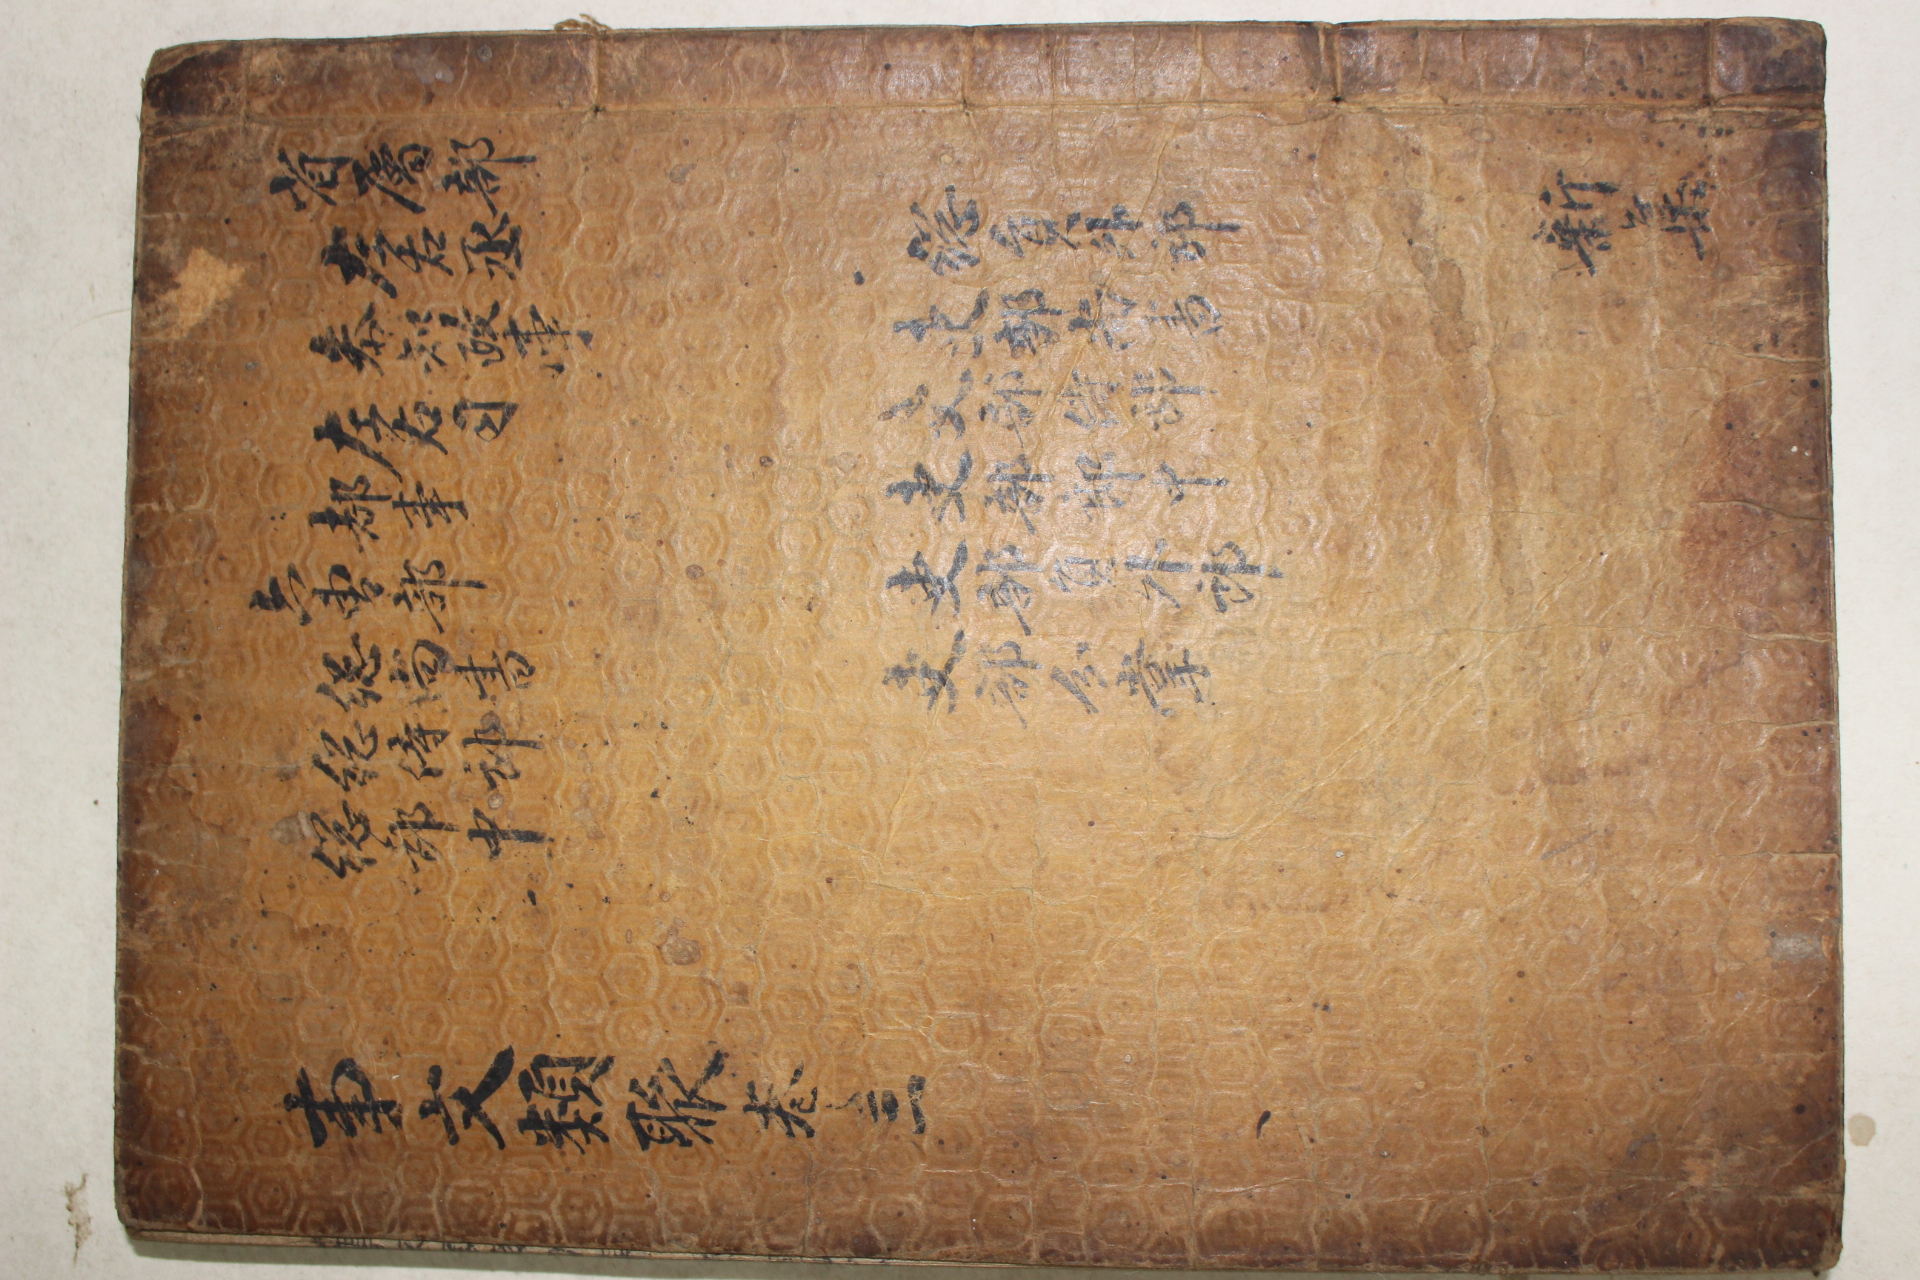 省屬部
左右丞
参知政事
左右司
都事
六曺部
総尚書
総侍郎
総郎中
総員外郎
吏部尚書
吏部侍郎
吏部郎中
吏部員外郎
吏部分掌
新集
事文類聚卷之三